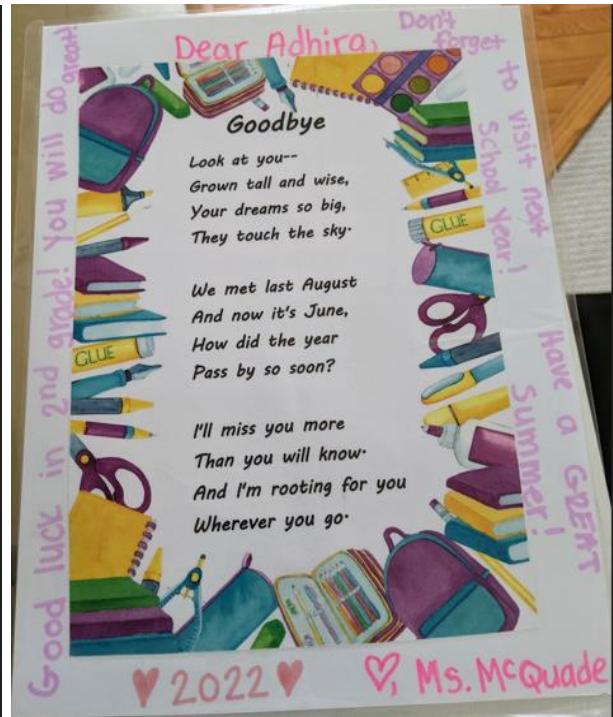 Dear Adhira,
Don't
forget
to visit next
School Year!
Have a GREAT
Summer!
Good luck in 2nd grade! You will do great!
Goodbye
Look at you--
Grown tall and wise,
Your dreams so big,
They touch the sky.
We met last August
And now it's June,
How did the year
Pass by so soon?
I'll miss you more
Than you will know.
And I'm rooting for you
Wherever you go.
GLUE
GLUE
♥ 2022 ♥
♡, Ms. McQuade